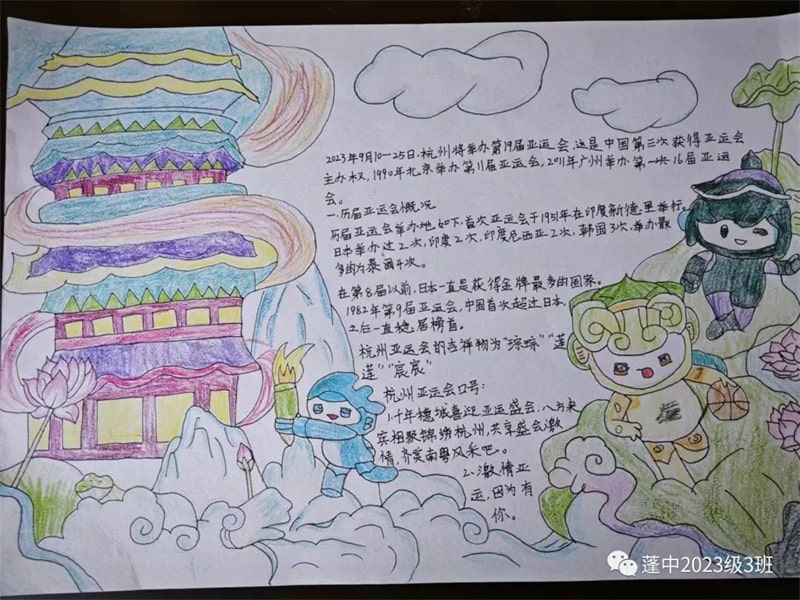 2023年9月10—25日,杭州将举办第19届亚运会,这是中国第三次获得亚运会
主办权,1990年北京举办第11届亚运会,2011年广州举办第16届亚运
会。
一.历届亚运会概况
历届亚运会举办地如下:首次亚运会于1951年在印度新德里举行。
日本举办过2次,印度2次,印度尼西亚2次,韩国3次,举办最
多的为泰国4次。
在第8届以前,日本一直是获得金牌最多的国家。
1982年第9届亚运会,中国首次超过日本,
之后一直稳居榜首。
杭州亚运会的吉祥物为“琮琮”“莲
莲”“宸宸”
杭州亚运会口号:
1.千年穗城喜迎亚运盛会,八方来
宾相聚锦绣杭州,共享盛会激
情,齐赏南粤风采吧。
2.激情亚
运,因为有
你。
蓬中2023级3班